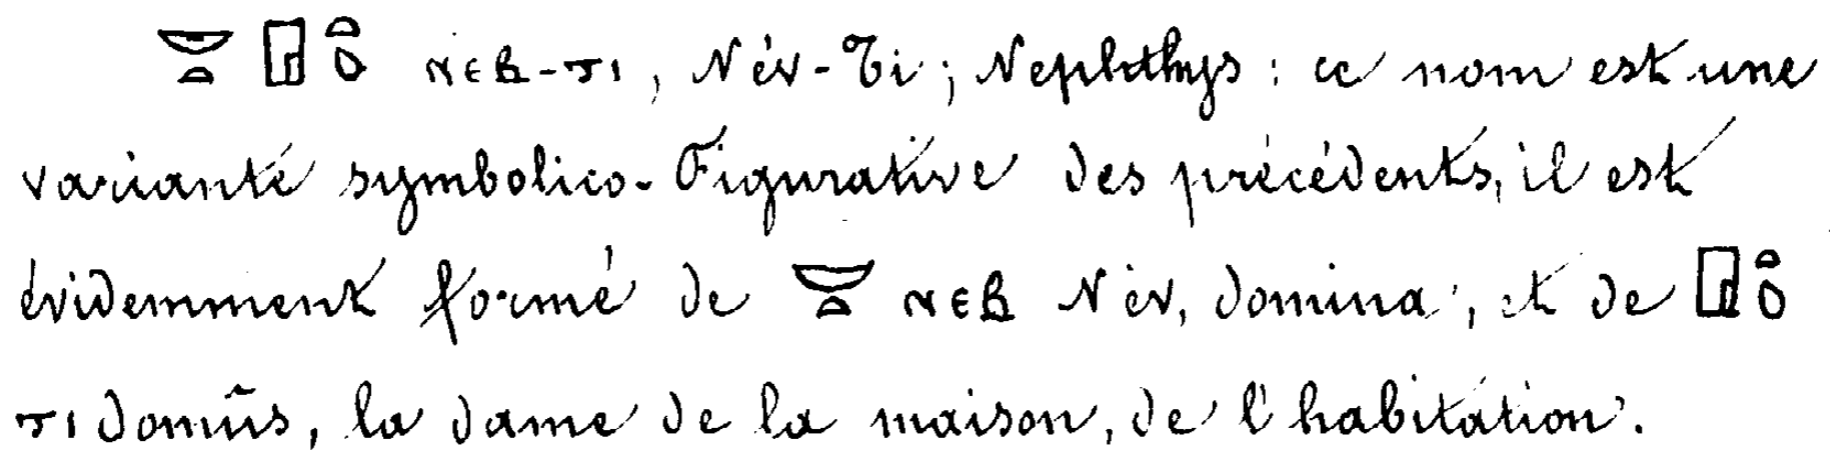 𓎟𓏏 𓉗𓏏𓆇 ⲛⲉⲃ-ⲧⲓ, Név-Ti; Nephthys: ce nom est une
variante symbolico-Figurative des précédents, il est
évidemment formé de 𓎟𓏏 ⲛⲉⲃ Név, domina; et de 𓉗𓏏𓆇
ⲧⲓ domûs, la dame de la maison, de l'habitation.